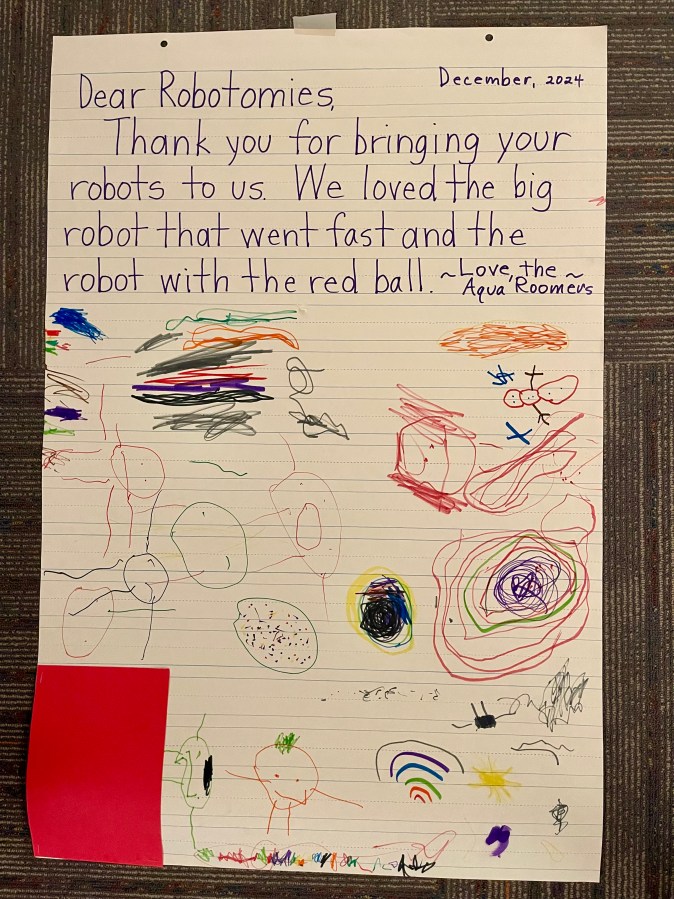 December, 2024
Dear Robotomies,
Thank you for bringing your
robots to us. We loved the big
robot that went fast and the
robot with the red ball. ~Love, the ~
Aqua Roomers